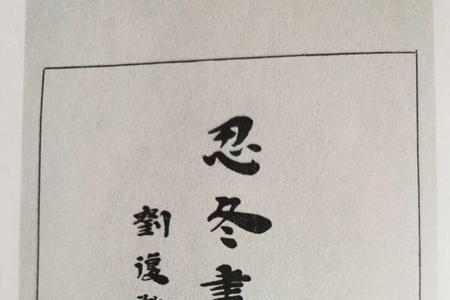 忍冬書
劉復